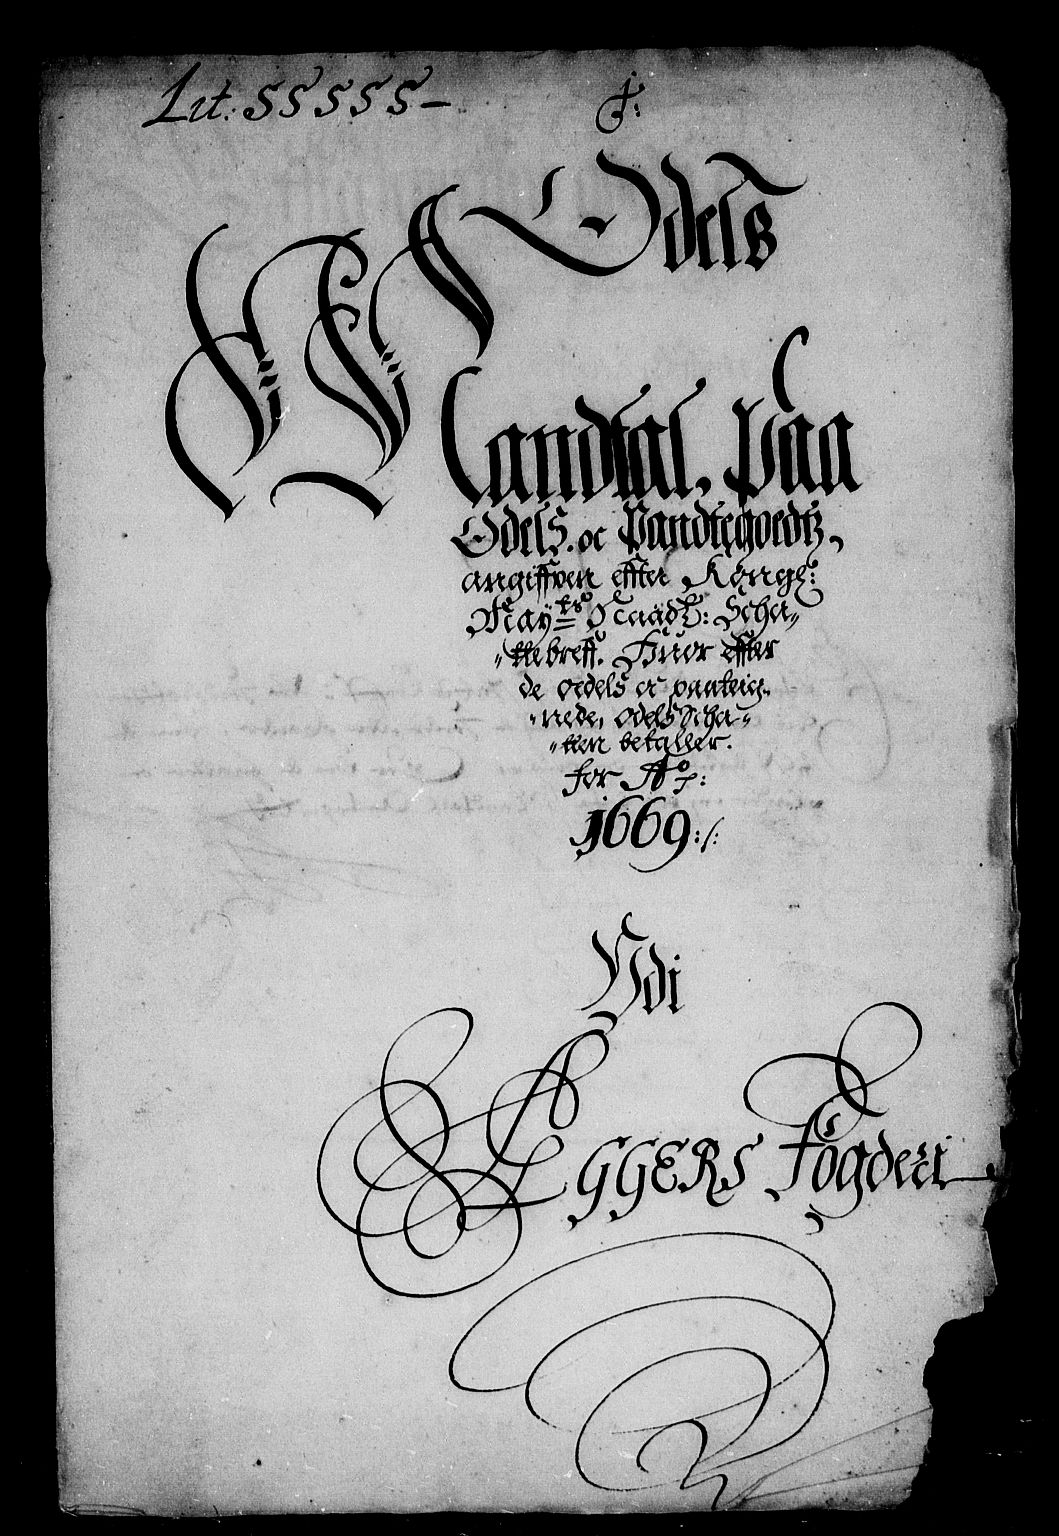 Lit: SSSSS –
J:
Odels
Mandtal, paa
Odels. oc Pandtegoedtz,
angiffven effter Konge:
May:tts Naadz: Scha„
„ttebreff. Huor effter
de odels oc panteig„
„nede, odels Scha„
„tten betaller.
for Aº:
1669:/:
Udi
EGGERS Fogderi